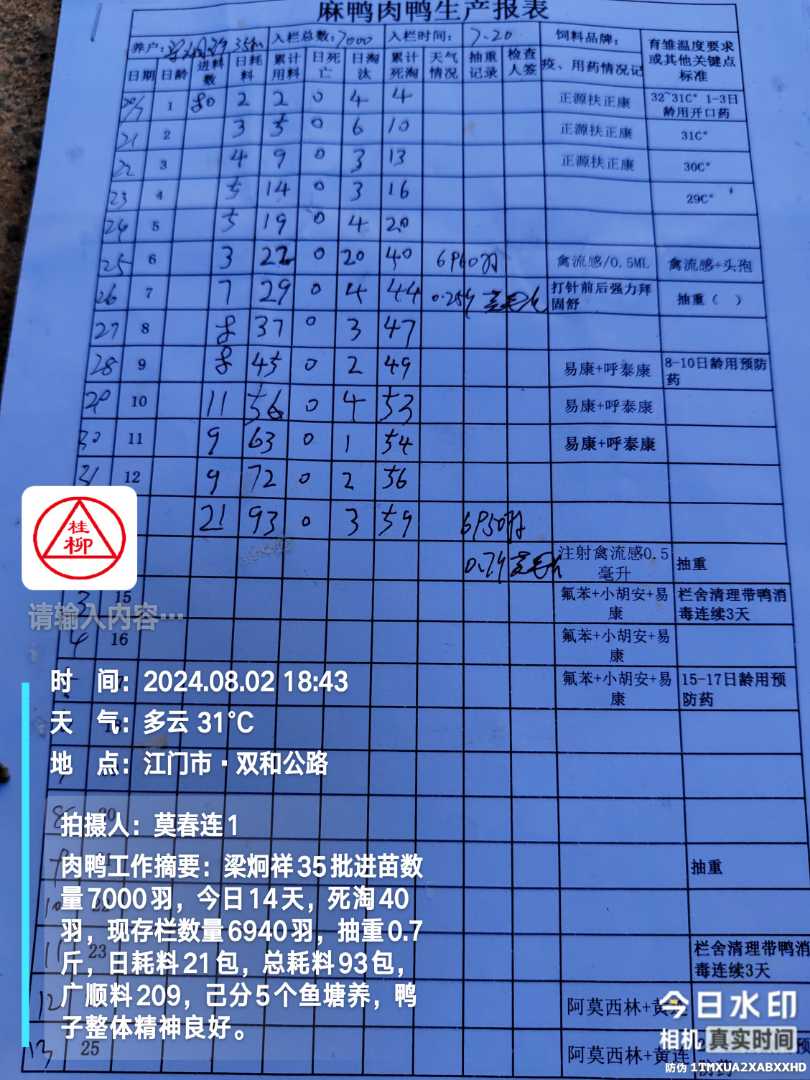 麻鸭肉鸭生产报表
养户: 35批 入栏总数: 7000 入栏时间: 7.20 饲料品牌: 育雏温度要求或其他关键点标准
日期 日龄 进料数 日耗料 累计用料 日死亡 日淘汰 累计死淘 天气情况 抽重记录 检查人签 疫、用药情况记
20/7 1 80 2 2 0 4 4 正源扶正康 32~31C° 1-3日龄用开口药
21 2 3 5 0 6 10 正源扶正康 31C°
22 3 4 9 0 3 13 正源扶正康 30C°
23 4 5 14 0 3 16 29C°
24 5 5 19 0 4 20
25 6 3 22 0 20 40 6960羽 禽流感/0.5ML 禽流感+头孢
26 7 7 29 0 4 44 0.25斤 打针前后强力拜固舒 抽重( )
27 8 8 37 0 3 47
28 9 8 45 0 2 49 易康+呼泰康 8-10日龄用预防药
29 10 11 56 0 4 53 易康+呼泰康
30 11 9 63 0 1 54 易康+呼泰康
31 12 9 72 0 2 56
21 93 0 3 59 6950羽
0.7斤 注射禽流感0.5毫升 抽重
3 15 氟苯+小胡安+易康 栏舍清理带鸭消毒连续3天
4 16 氟苯+小胡安+易康
氟苯+小胡安+易康 15-17日龄用预防药
抽重
11 23 栏舍清理带鸭消毒连续3天
12 阿莫西林+黄连
13 25 阿莫西林+黄连
桂
柳
请输入内容…
时 间: 2024.08.02 18:43
天 气: 多云 31°C
地 点: 江门市·双和公路
拍摄人: 莫春连1
肉鸭工作摘要: 梁炯祥35批进苗数
量7000羽，今日14天，死淘40
羽，现存栏数量6940羽，抽重0.7
斤，日耗料21包，总耗料93包，
广顺料209，己分5个鱼塘养，鸭
子整体精神良好。
今日水印
相机 真实时间
防伪 1TMXUA2XABXXHD